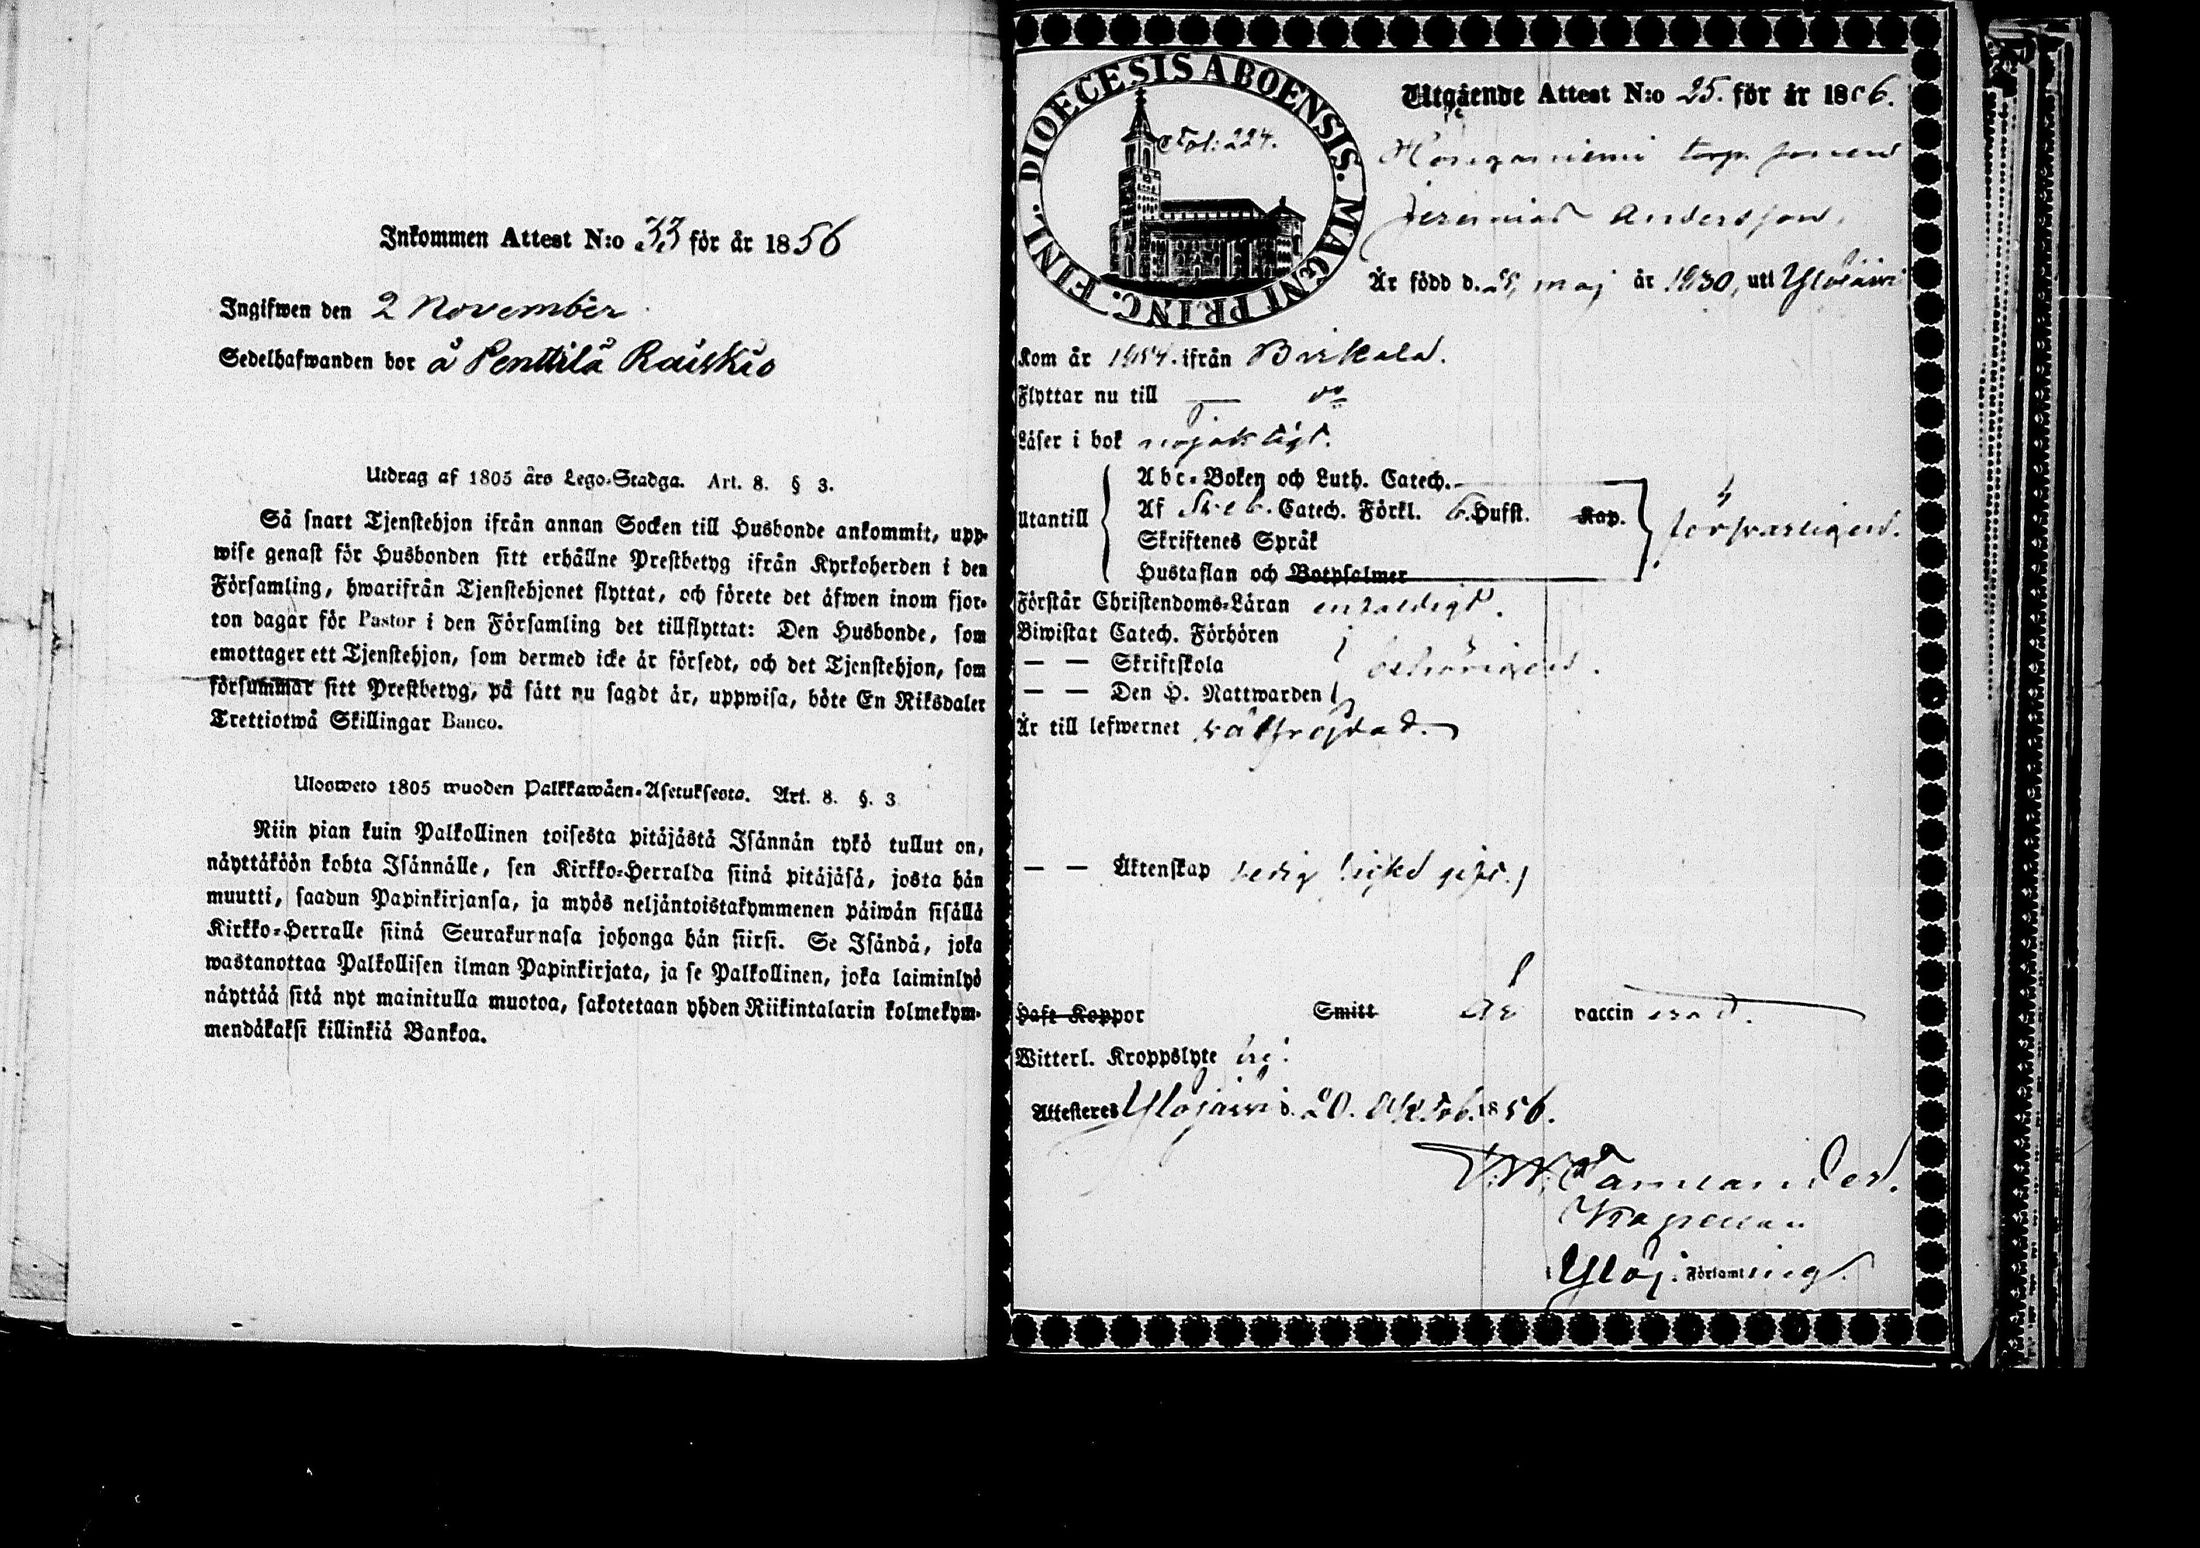 Inkommen Attest N:o 33 för år 1856
Ingifwen den 2 November
Sedelhafwanden bor å Penttilä Räikkö
Utdrag af 1805 års Lego-Stadga. Art. 8. § 3.
Så snart Tjenstehjon ifrån annan Socken till Husbonde ankommit, upp-
wise genast för Husbonden sitt erhållne Prestbetyg ifrån Kyrkoherden i den
Församling, hwarifrån Tjenstehjonet flyttat, och förete det äfwen inom fjor-
ton dagar för Pastor i den Församling det tillflyttat: Den Husbonde, som
emottager ett Tjenstehjon, som dermed icke är försedt, och det Tjenstehjon, som
försummar sitt Prestbetyg, på sätt nu sagdt är, uppwisa, böte En Riksdaler
Trettiotwå Skillingar Banco.
Ulosweto 1805 wuoden Palkkawäen-Asetuksesta. Art. 8. §. 3
Niin pian kuin Palkollinen toisesta pitäjästä Isännän tykö tullut on,
näyttäköön kohta Isännälle, sen Kirkko-Herralda siinä pitäjäsä, josta hän
muutti, saadun Papinkirjansa, ja myös neljäntoistakymmenen päiwän sisällä
Kirkko-Herralle siinä Seurakunnasa johonga hän siirsi. Se Isändä, joka
wastanottaa Palkollisen ilman Papinkirjata, ja se Palkollinen, joka laiminlyö
näyttää sitä nyt mainitulla muotoa, sakotetaan yhden Riikintalarin kolmekym-
mendäkaksi killinkiä Bankoa.
DIOECESIS ABOENSIS. MAGNI PRINC. FINL.
Fol: 224.
Utgående Attest N:o 25. för år 1856.
torp. sonen
Jeremias Andersson.
Är född d. 25 maj år 1830, uti Ylöjärvi
Kom år 1854. ifrån Birkala.
Flyttar nu till — do
Läser i bok nöjaktigt.
Abc-Boken och Luth. Catech.
Utantill Af Sveb. Catech. Förkl. 6. Hufst. Kap. försvarligen.
Skriftenes Språk
Hustaflan och Botpsalmer
Förstår Christendoms-Läran enfaldigt.
Biwistat Catech. Förhören
— — Skriftskola behörigen.
— — Den H. Nattwarden
Är till lefwernet välfrejdad.
— — Äktenskap ledig
Haft Koppor Smitt Är vaccinerad.
Witterl. Kroppslyte ej.
Attesteres Ylöjärvi d. 20. Oktob. 1856.
Kapellan
Ylöj. Församling.